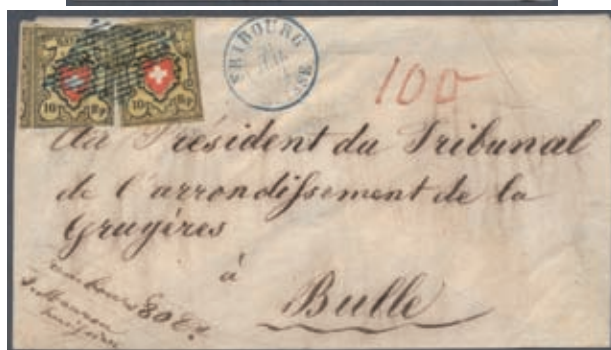 10 Rp
10 Rp
FRIBOURG
100
Au Président du Tribunal
de l'arrondissement de la
Gruyères
à
Bulle
80